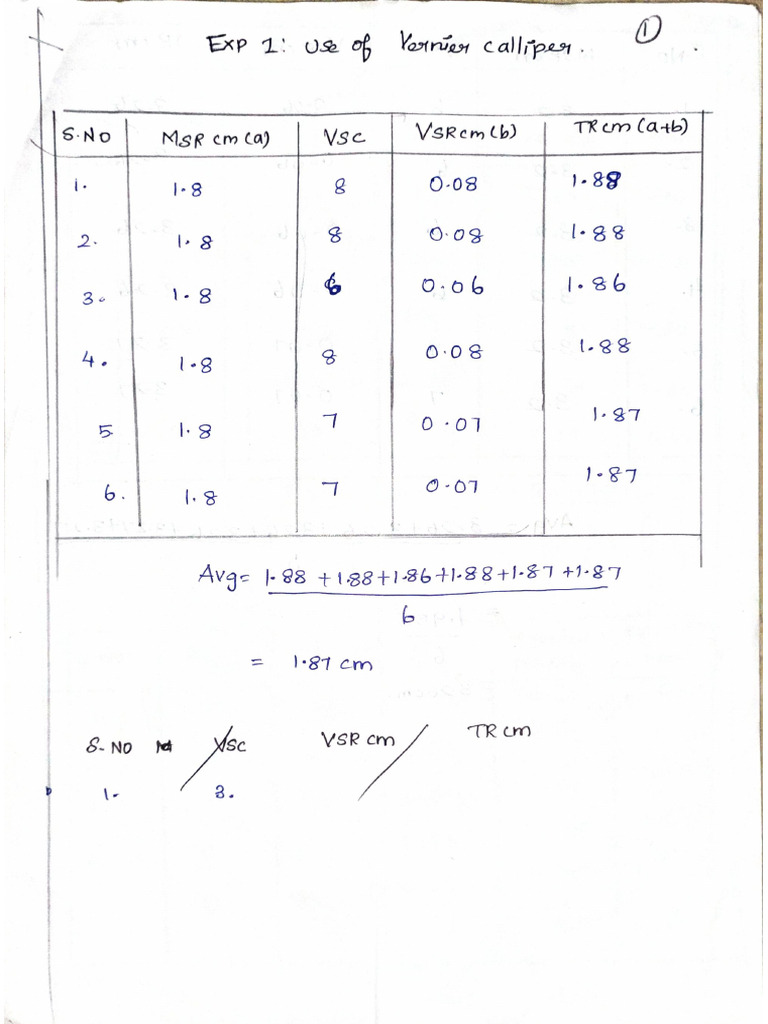 ①
Exp 1: Use of Vernier calliper.
S.NO MSR cm (a) VSC VSR cm (b) TR cm (a+b)
1. 1.8 8 0.08 1.88
2. 1.8 8 0.08 1.88
3. 1.8 6 0.06 1.86
4. 1.8 8 0.08 1.88
5 1.8 7 0.07 1.87
6. 1.8 7 0.07 1.87
Avg = 1.88 + 1.88 + 1.86 + 1.88 + 1.87 + 1.87
6
= 1.87 cm
S.NO VSC VSR cm TR cm
1. 3.